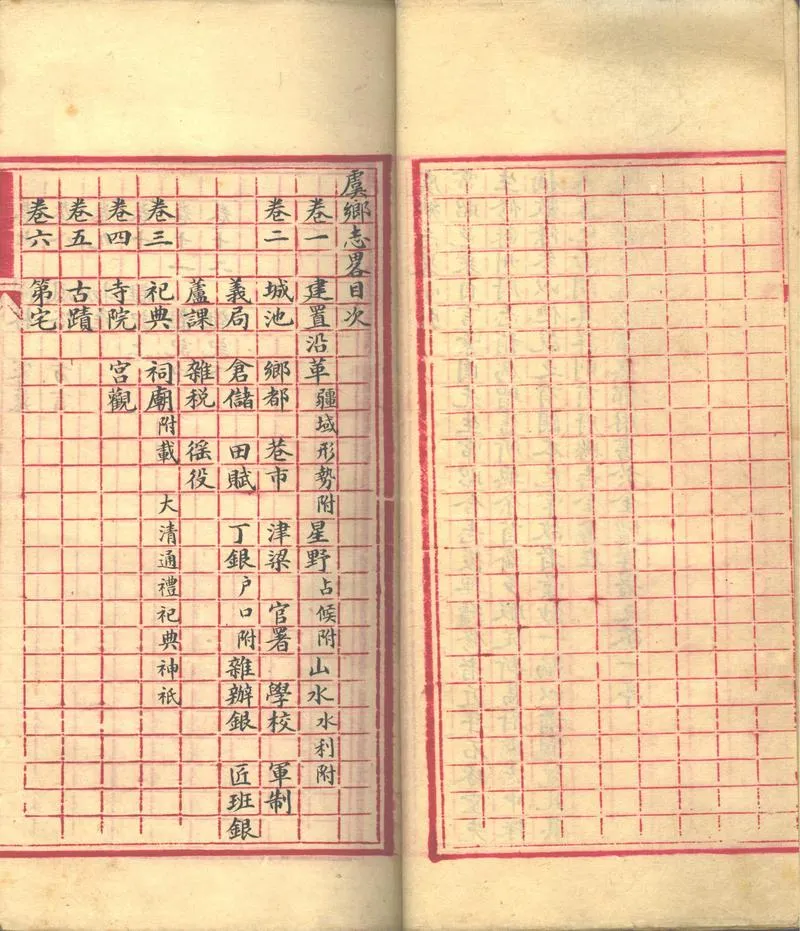 虞鄉志畧目次
卷一 建置沿革 疆域形勢附 星野 占候附 山水 水利附
卷二 城池 鄉都 巷市 津梁 官署 學校 軍制
義局 倉儲 田賦 丁銀 户口附 雜辦銀 匠班銀
蘆課 雜税 徭役
卷三 祀典 祠廟 附載 大清通禮祀典神祇
卷四 寺院 宮觀
卷五 古蹟
卷六 第宅